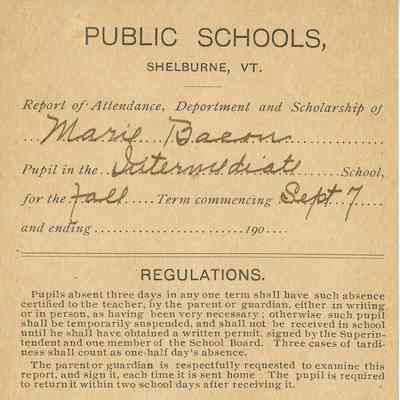 PUBLIC SCHOOLS,
SHELBURNE, VT.
Report of Attendance, Deportment and Scholarship of
...Marie Bacon...............
Pupil in the..Intermediate......School,
for the Fall.....Term commencing Sept 7.....
and ending......................190....
REGULATIONS.
Pupils absent three days in any one term shall have such absence
certified to the teacher, by the parent or guardian, either in writing
or in person, as having been very necessary; otherwise such pupil
shall be temporarily suspended, and shall not be received in school
until he shall have obtained a written permit, signed by the Superin-
tendent and one member of the School Board. Three cases of tardi-
ness shall count as one-half day's absence.
The parent or guardian is respectfully requested to examine this
report, and sign it, each time it is sent home. The pupil is required
to return it within two school days after receiving it.